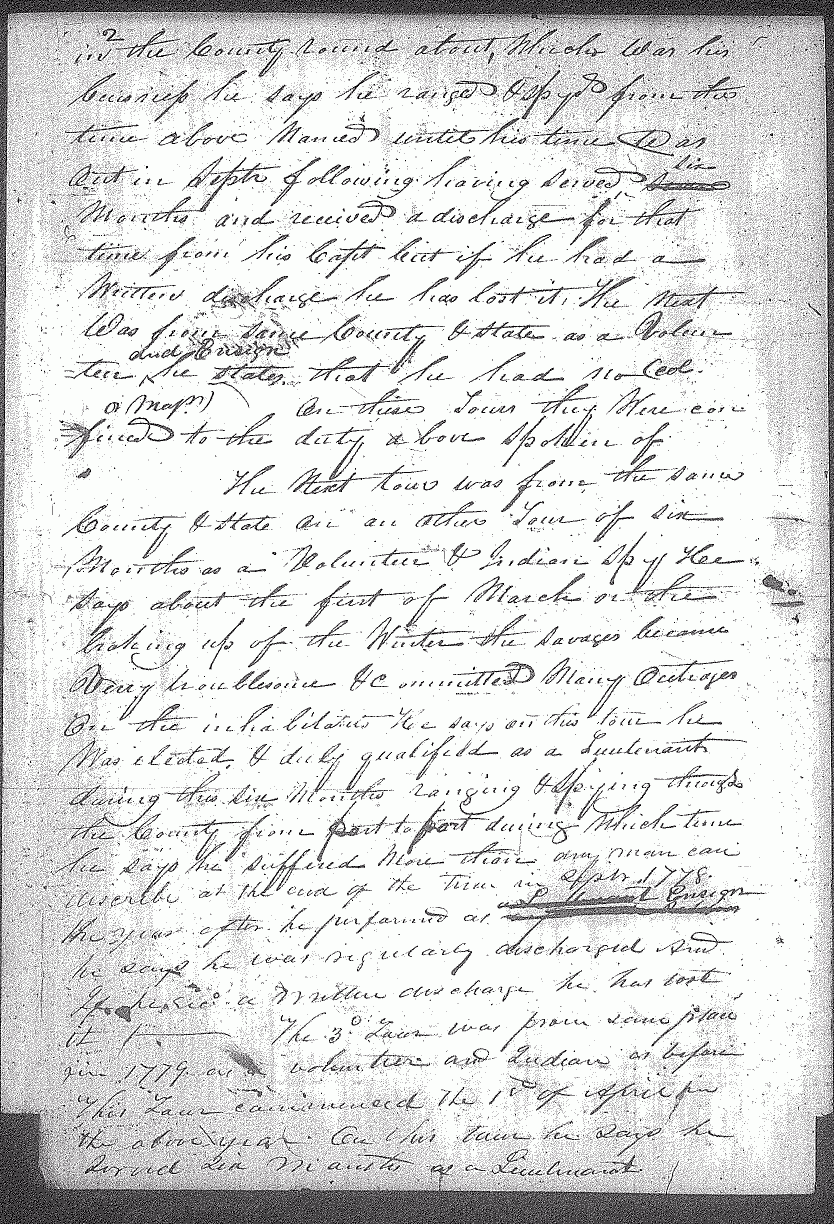 2
in the County round about, Which Was his
buisness he says he ranged & spyd from the
time above Named until his time Was
Out in Septr following having served, six
Months and received a discharge for that
time from his Capt but if he had a
Written discharge he has lost it, The Next
Was from same County & state as a Volun
and Ensign
teer he states that he had no Col.
or Majr) On these Tours they Were con
fined to the duty above spoken of
The Next tour was from the same
County & state on an other Tour of six
Months as a Volunteer & Indian spy He
says about the first of March or the
braking up of the Winter the savages became
Verry troublesome & Committed Many Outrages
On the inhabitants He says on this tour he
Was elected, & duly qualified as a Lieutenant
during this six Months ranging & spying through
the County from part to part during Which time
he says he suffered More than any man can
discribe at the end of the time in Septr 1778.
the year after he performed as Ensign
he says he was regularly discharged And
If he recd a written discharge he has lost
it The 3d Tour was from same place
in 1779 as a volunteer and Indian as before
This Tour commenced the 1st of April in
the above year. On this tour he says he
served six Months as a Lieutenant